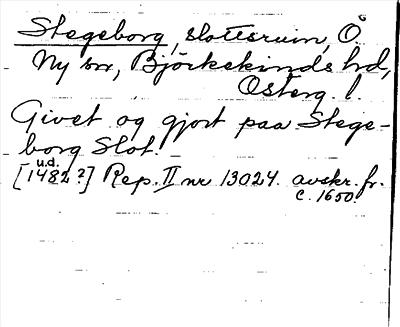 Stegeborg, slottsruin, Ö.
Ny sn, Björkekinds hd,
Österg. l.
Givet og gjort paa Stege-
borg Slot.
u.d.
[1482?] Rep. II nr 13024. avskr. fr.
c. 1650.